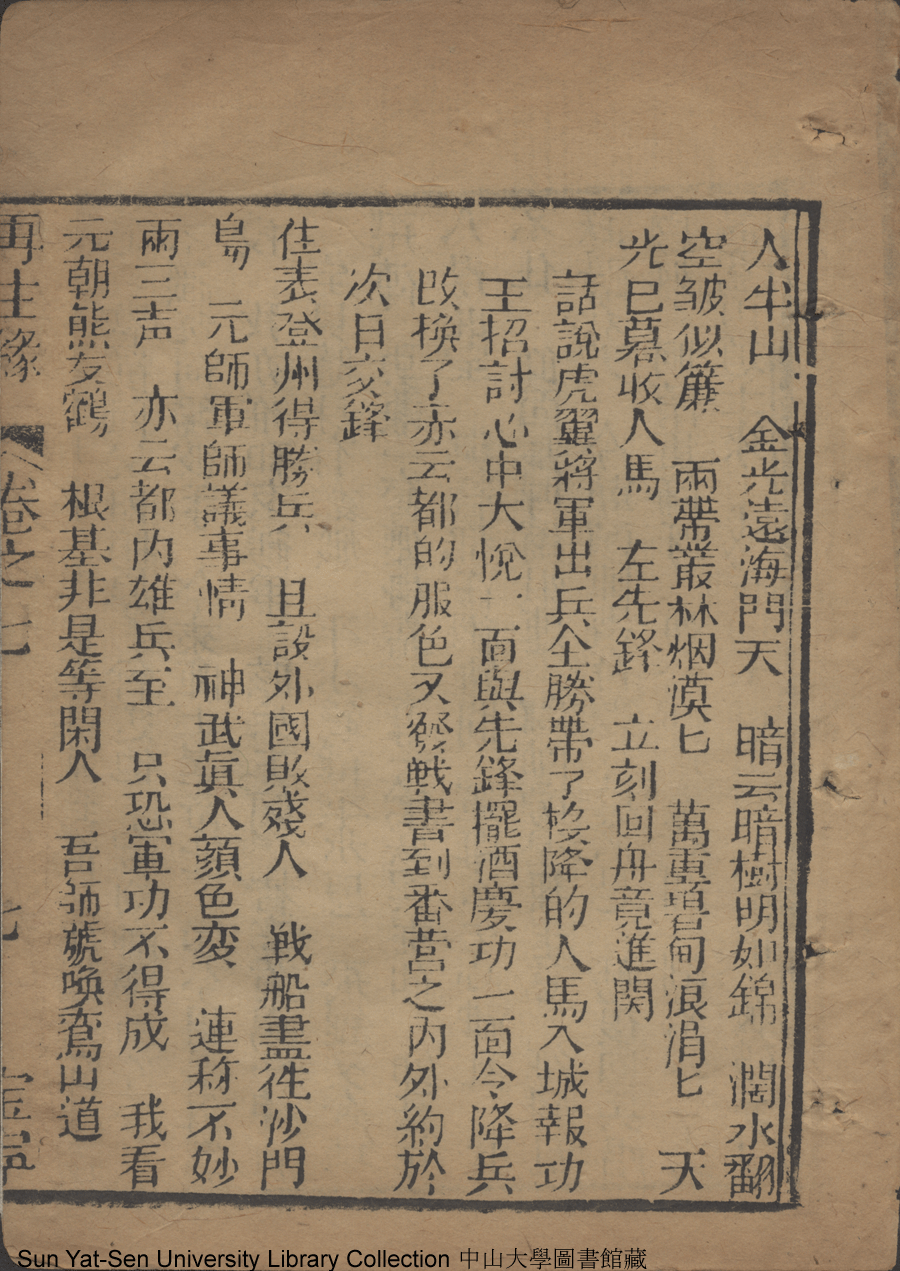 人半山　金光遠海門天　暗云暗樹明如錦　濶水翻
空皱似簾　兩帶叢林烟漠匕　萬重碧甸浪涓匕　天
光已暮收人馬　左先鋒　立刻回舟竟進関
話說虎翼將軍出兵全勝帶了投降的人馬入城報功
王招討心中大悅一面與先鋒擺酒慶功二面令降兵
改換了亦云都的服色又發戦書到番营之內外約於
次日交鋒
住表登州得勝兵　且說外國敗殘人　戦船盡徃沙門
島　元師軍師議事情　神武眞人顔色変　連称不妙
兩三声　亦云都內雄兵至　只恐軍功不得成　我看
元朝熊友鶴　根基非是等閑人　吾師號喚喬山道
再生緣　卷之七　七
Sun Yat-Sen University Library Collection 中山大學圖書館藏